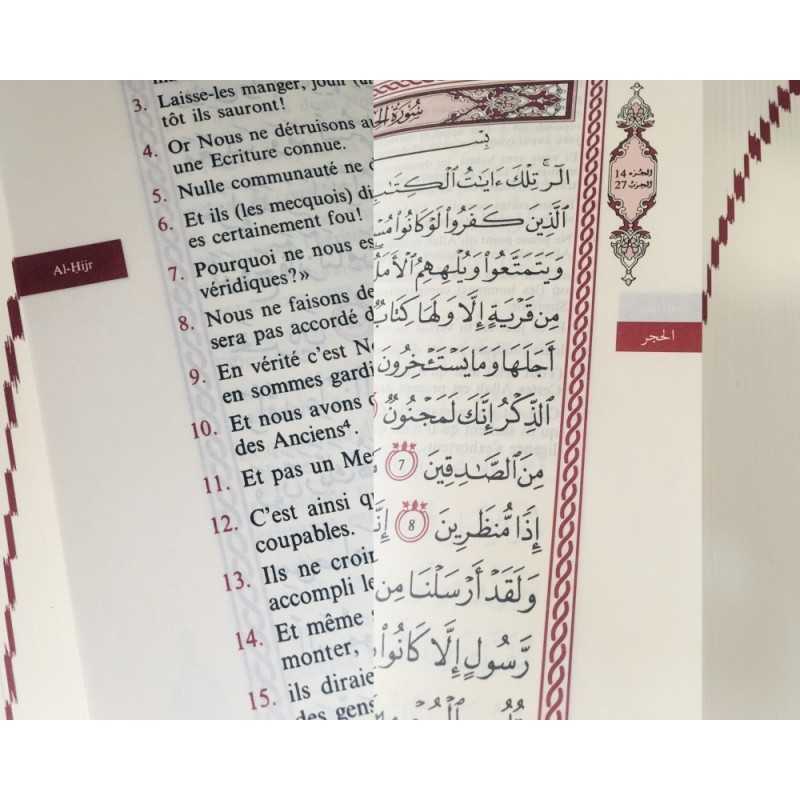 Al-Ḥijr
3. Laisse-les manger, jouir
tôt ils sauront!
4. Or Nous ne détruisons
une Ecriture connue.
5. Nulle communauté ne
6. Et ils (les mecquois)
es certainement fou!
7. Pourquoi ne nous
véridiques?»
8. Nous ne faisons
sera pas accordé
9. En vérité c'est
en sommes
10. Et nous avons
des Anciens⁴.
11. Et pas un
12. C'est ainsi
coupables.
13. Ils ne
accompli
14. Et même
monter,
15. ils
des
سُورَةُ
الٓرۚ تِلۡكَ ءَايَٰتُ
ٱلَّذِينَ كَفَرُواْ لَوۡ كَانُواْ
وَيَتَمَتَّعُواْ وَيُلۡهِهِمُ
مِن قَرۡيَةٍ إِلَّا وَلَهَا
أَجَلَهَا وَمَا يَسۡتَـٔۡخِرُونَ
ٱلذِّكۡرُ إِنَّكَ لَمَجۡنُونٌ
مِنَ ٱلصَّٰدِقِينَ 7
إِذٗا مُّنظَرِينَ 8
وَلَقَدۡ أَرۡسَلۡنَا مِن
رَّسُولٍ إِلَّا كَانُواْ
الجزء 14
الحزب 27
الحجر